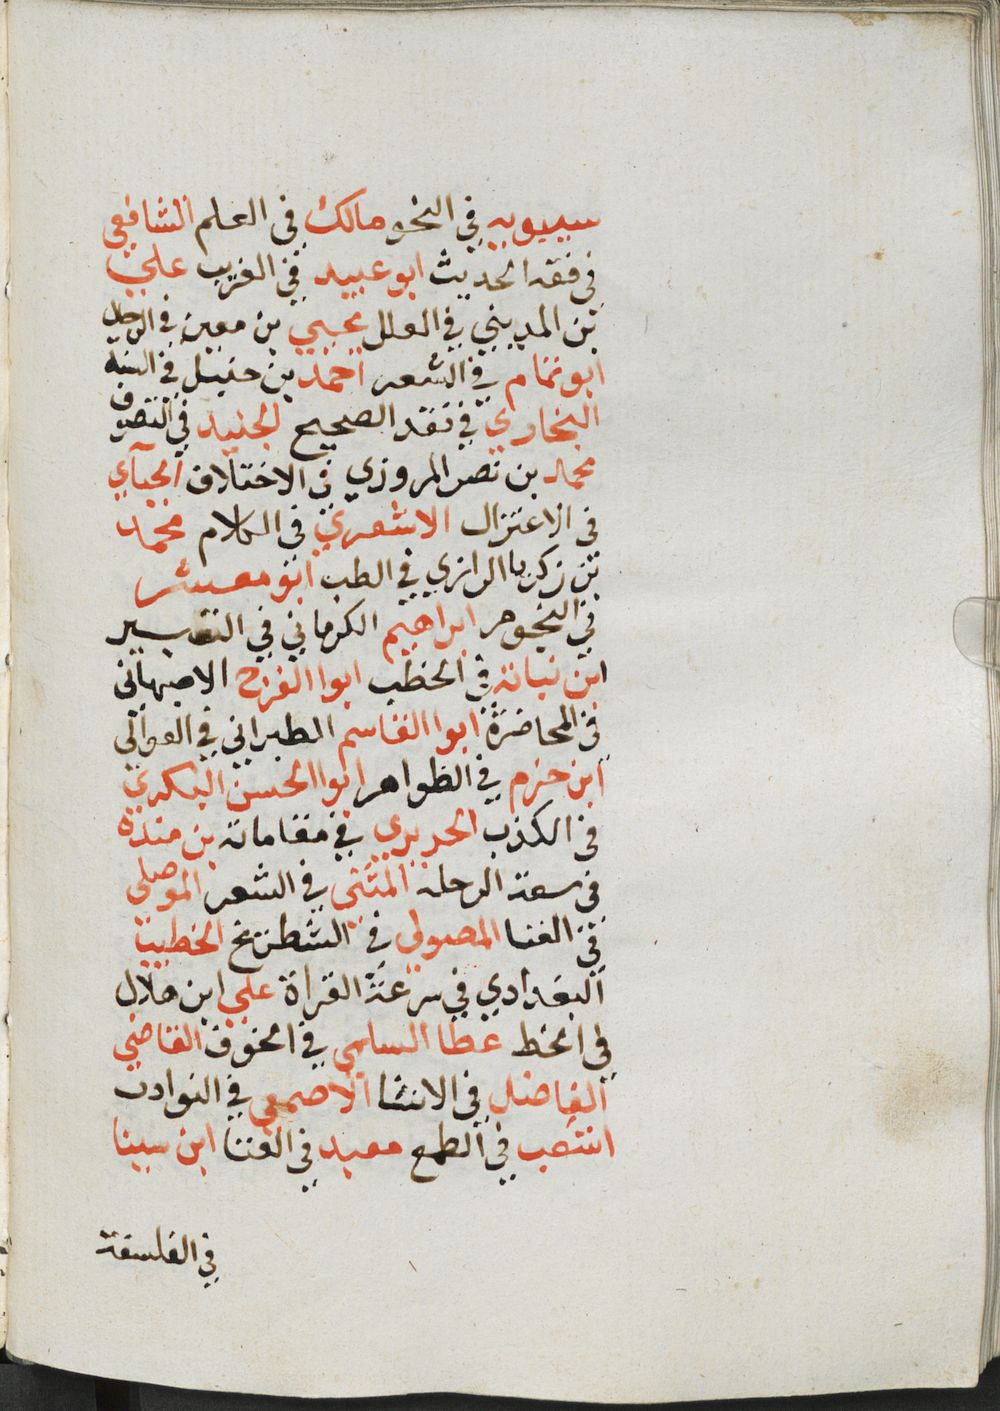 سيبويه في النحو مالك في العلم الشافعي
في فقه الحديث ابو عبيد في الغريب علي
بن المديني في العلل يحيي بن معين في الرجال
ابو تمام في الشعر احمد بن حنبل في السنه
البخاري في نقد الصحيح الجنيد في التصوف
محمد بن نصر المروزي في الاختلاف الجبآي
في الاعتزال الاشعري في الكلام محمد
بن زكريا الرازي في الطب ابو معشر
في النجوم ابراهيم الكرماني في التفسير
ابن نباتة في الخطب ابوا الفرج الاصبهاني
في المحاضرة ابوا القاسم الطبراني في العوالي
ابن حزم في الظواهر ابوا الحسن البكري
في الكذب الحريري في مقاماته بن مندة
في سعة الرحلة المتنبي في الشعر الموصلي
في الغنا الصولي في الشطرنج الخطيب
البغدادي في سرعة القراة علي ابن هلال
في الخط عطا السلمي في الخوف القاضي
الفاضل في الانشا الاصمعي في النوادر
اشعب في الطمع معبد في الغنا ابن سينا
في الفلسفة